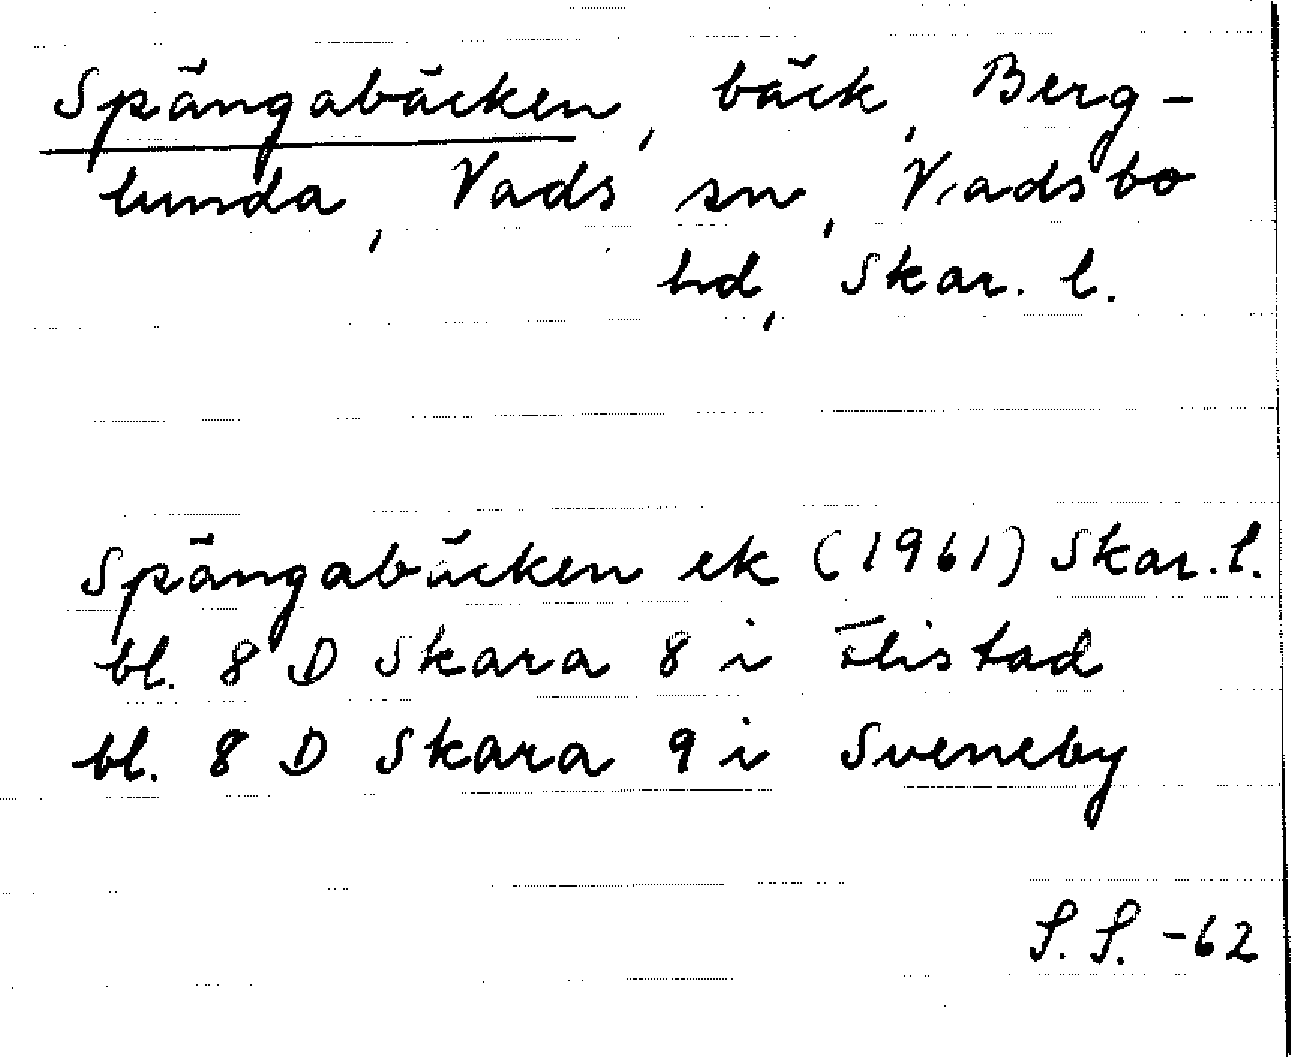 Spångabäcken, bäck, Berg-
lunda, Vads sn, Vadsbo
hd, Skar. l.
Spångabäcken ek (1961) Skar. l.
bl. 8 D Skara 8 i Flistad
bl. 8 D Skara 9 i Sveneby
S. S. -62